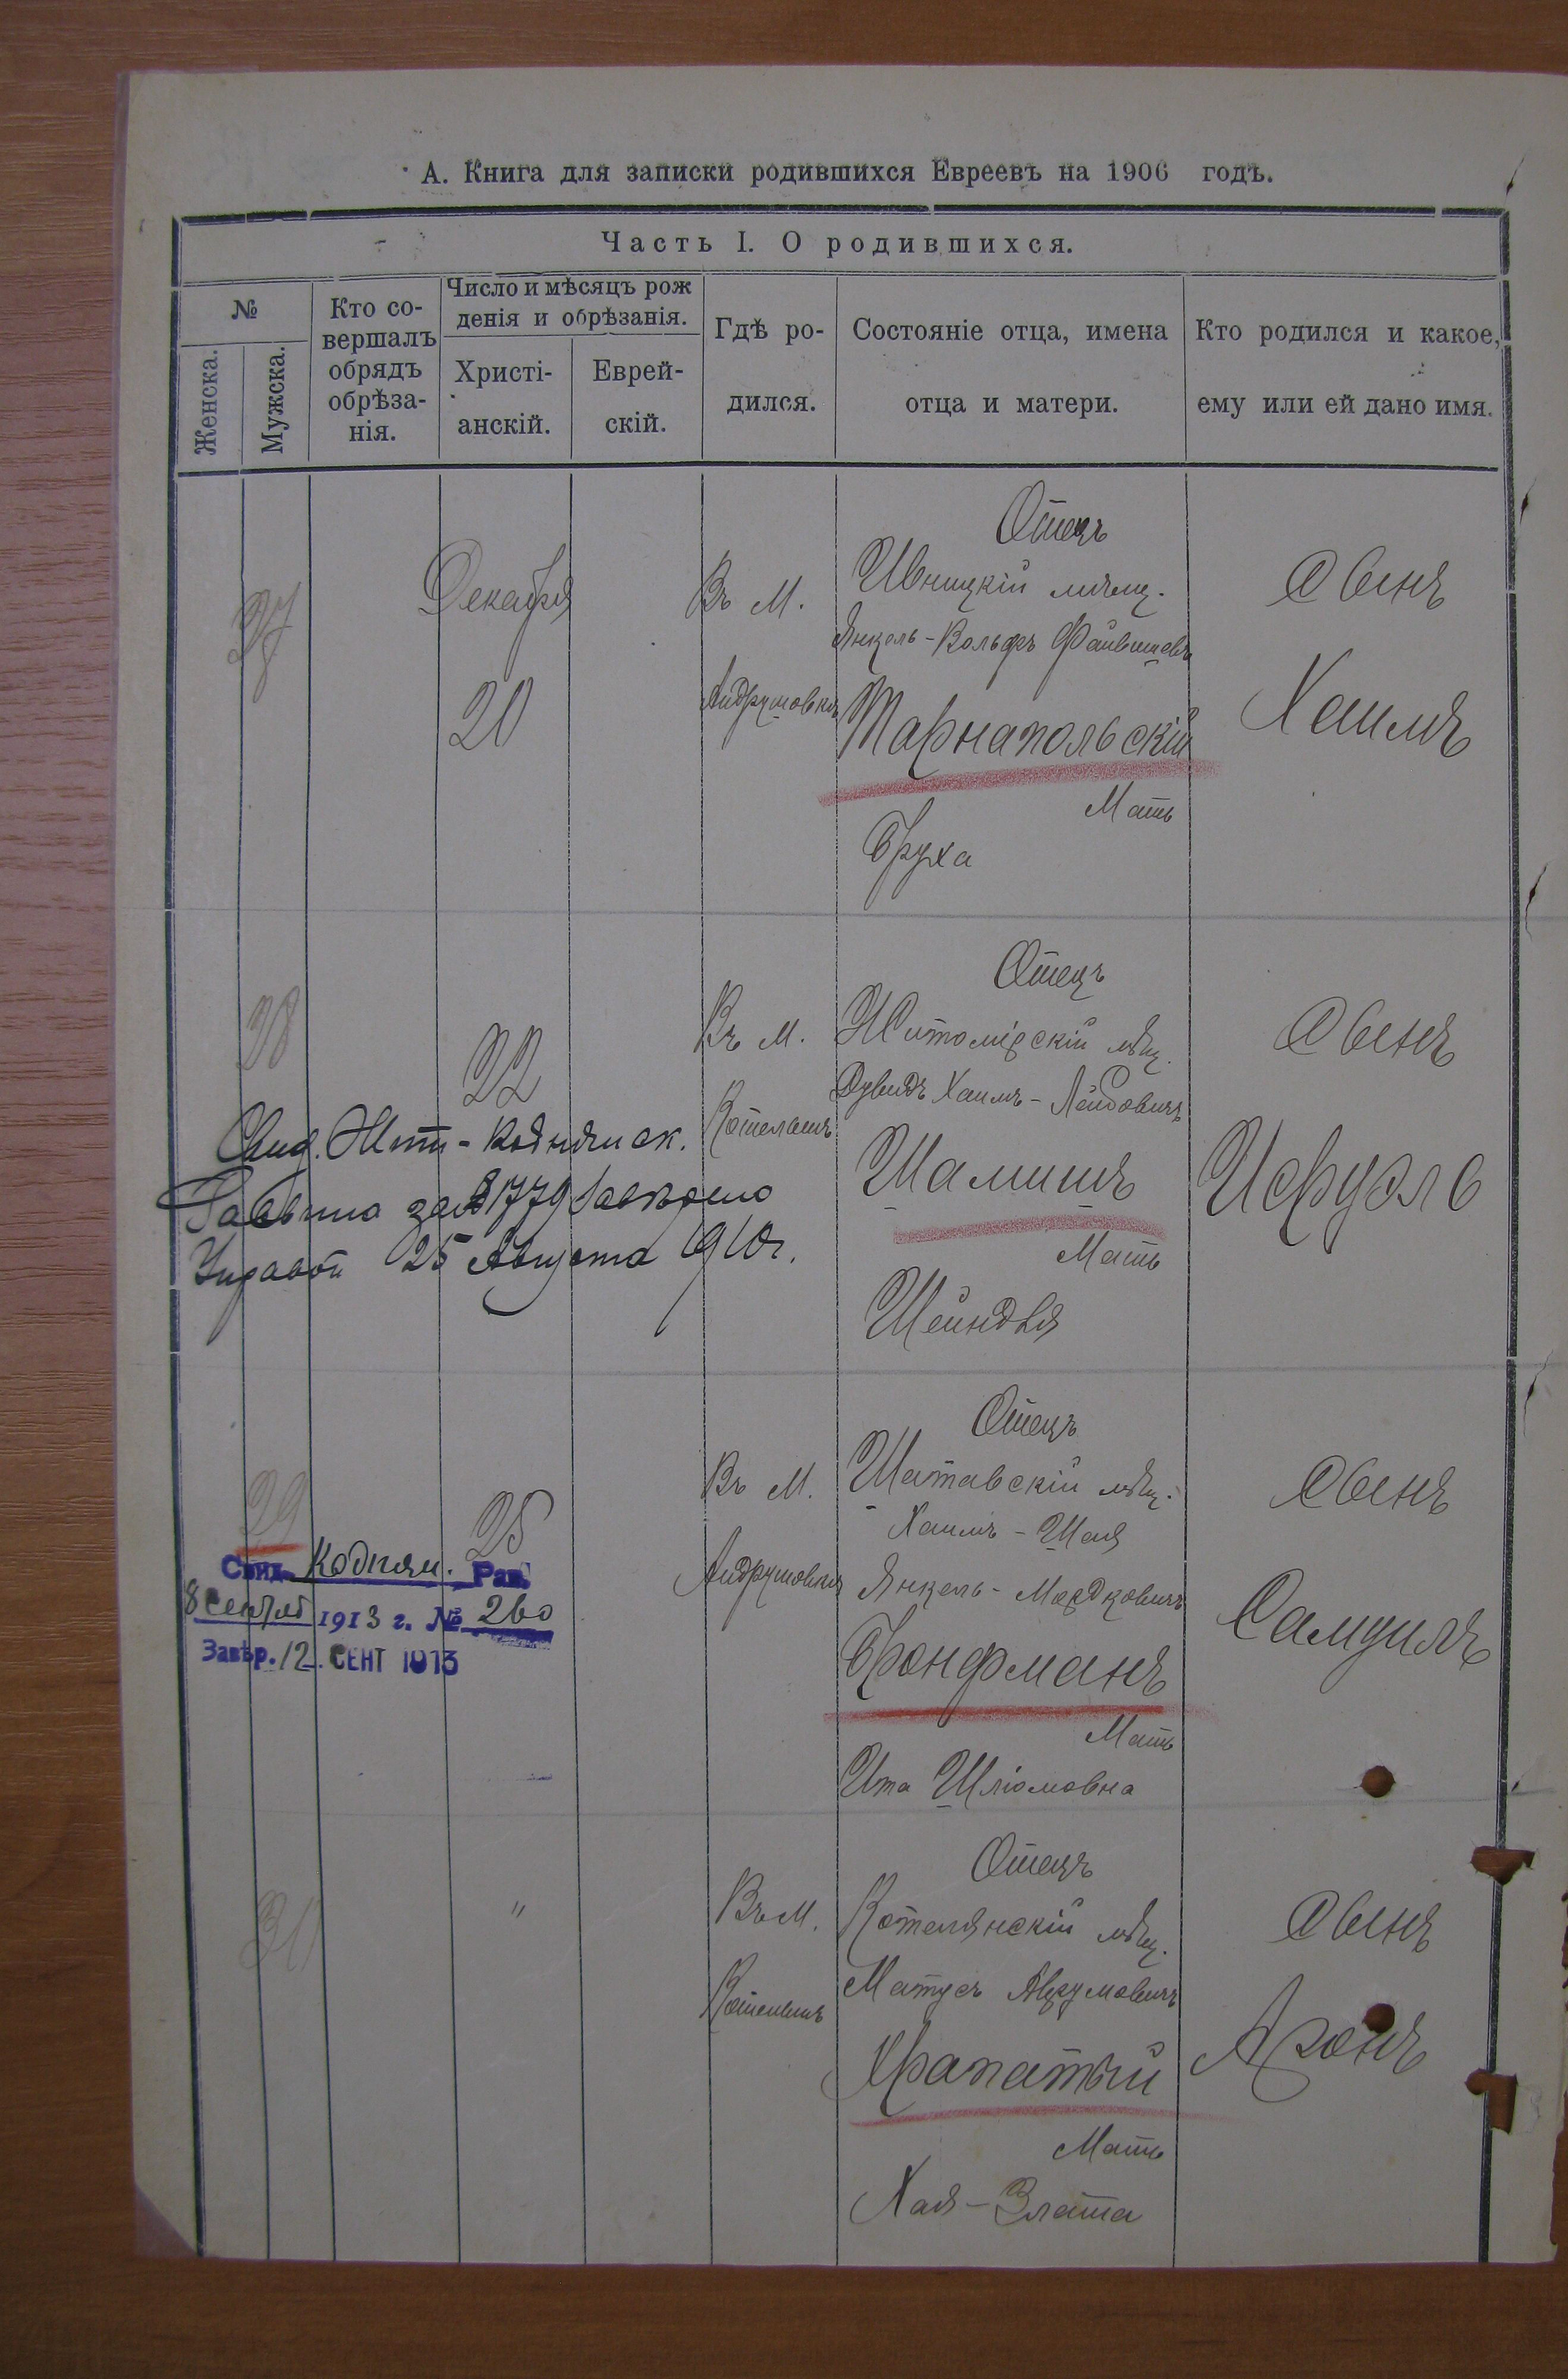 А. Книга для записки родившихся Евреевъ на 1906 годъ.
Часть I. О родившихся.
№
Женска.
Мужска.
Кто со-
вершалъ
обрядъ
обрѣза-
нія.
Число и мѣсяцъ рож
денія и обрѣзанія.
Христі-
анскій.
Еврей-
скій.
Гдѣ ро-
дился.
Состояніе отца, имена
отца и матери.
Кто родился и какое,
ему или ей дано имя.
27
Декабря
20
Въ М.
Андрушовкѣ
Отецъ
Ивницкій мѣщ.
Янкель-Вольфъ Файвишевъ
Тарнапольскій
Мать
Бруха
Сынъ
Хаимъ
28
22
Въ М.
Котельнѣ
Отецъ
Житомірскій мѣщ.
Дувидъ Хаимъ-Лейбовичъ
Шамишъ
Мать
Шейндля
Сынъ
Исруэль
Свид.
за № 1779
Управой 25 Августа 1910 г.
29
25
Въ М.
Андрушовкѣ
Отецъ
Шатавскій мѣщ.
Хаимъ-Шая
Янкель-Мордковичъ
Бронфманъ
Мать
Ита Шліомовна
Сынъ
Самуилъ
Свид. Кодням. Рав.
8 Сентяб 1913 г. № 260
Завѣр. 12. СЕНТ 1913
30
"
Въ М.
Котельнѣ
Отецъ
Котелянскій мѣщ.
Матусъ Аврумовичъ
Крапатый
Мать
Хая-Злата
Сынъ
Аронъ